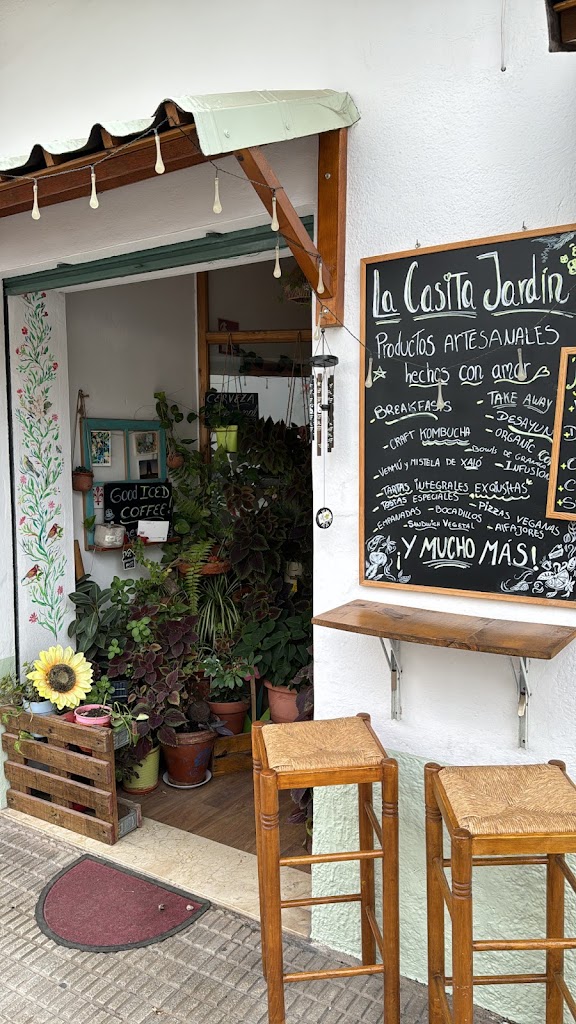 La Casita Jardín
Productos ARTESANALES
hechos con amor
- BREAKFASTS
- TAKE AWAY
- DESAYU
- CRAFT KOMBUCHA
- ORGANIC
- Bowls de
- VERMÚ y MISTELA DE XALÓ
- INFUSION
- TARTAS INTEGRALES EXQUISITAS
- TOSTAS ESPECIALES
- PIZZAS VEGANAS
- EMPANADAS - BOCADILLOS
- ALFAJORES
- SANDWICH VEGETAL
¡Y MUCHO MÁS!
CERVEZA
GOOD ICED
COFFEE!